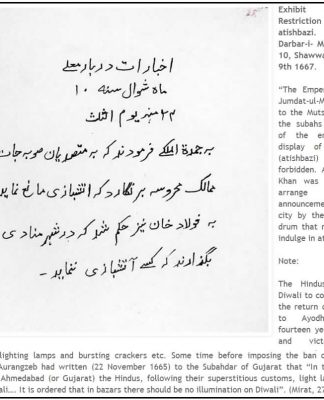 اخبارات دربار معلے
ماه شوال سنه ۱۰
۲۴ شهر یوم الثلث
به جمدة الملکے فرمودند که به متصدیان صوبه جات
ممالک محروسه برنگارد که آتشبازی مانع نماید
به فولاد خان نیز حکم شد که در شهر منادی
بگذارند که کسے آتشبازی ننماید -
Exhibit
Restriction
atishbazi.
Darbar-i- M
10, Shawwa
9th 1667.
"The Empe
Jumdat-ul-M
to the Muts
the subahs
of the en
display of
(atishbazi)
forbidden. A
Khan was
arrange
announceme
city by the
drum that n
indulge in at
Note:
The Hindus
Diwali to co
the return o
to Ayodh
fourteen ye
and vict
lighting lamps and bursting crackers etc. Some time before imposing the ban o
Aurangzeb had written (22 November 1665) to the Subahdar of Gujarat that "In t
Ahmedabad (or Gujarat) the Hindus, following their superstitious customs, light la
ali.... It is ordered that in bazars there should be no illumination on Diwali". (Mirat, 27